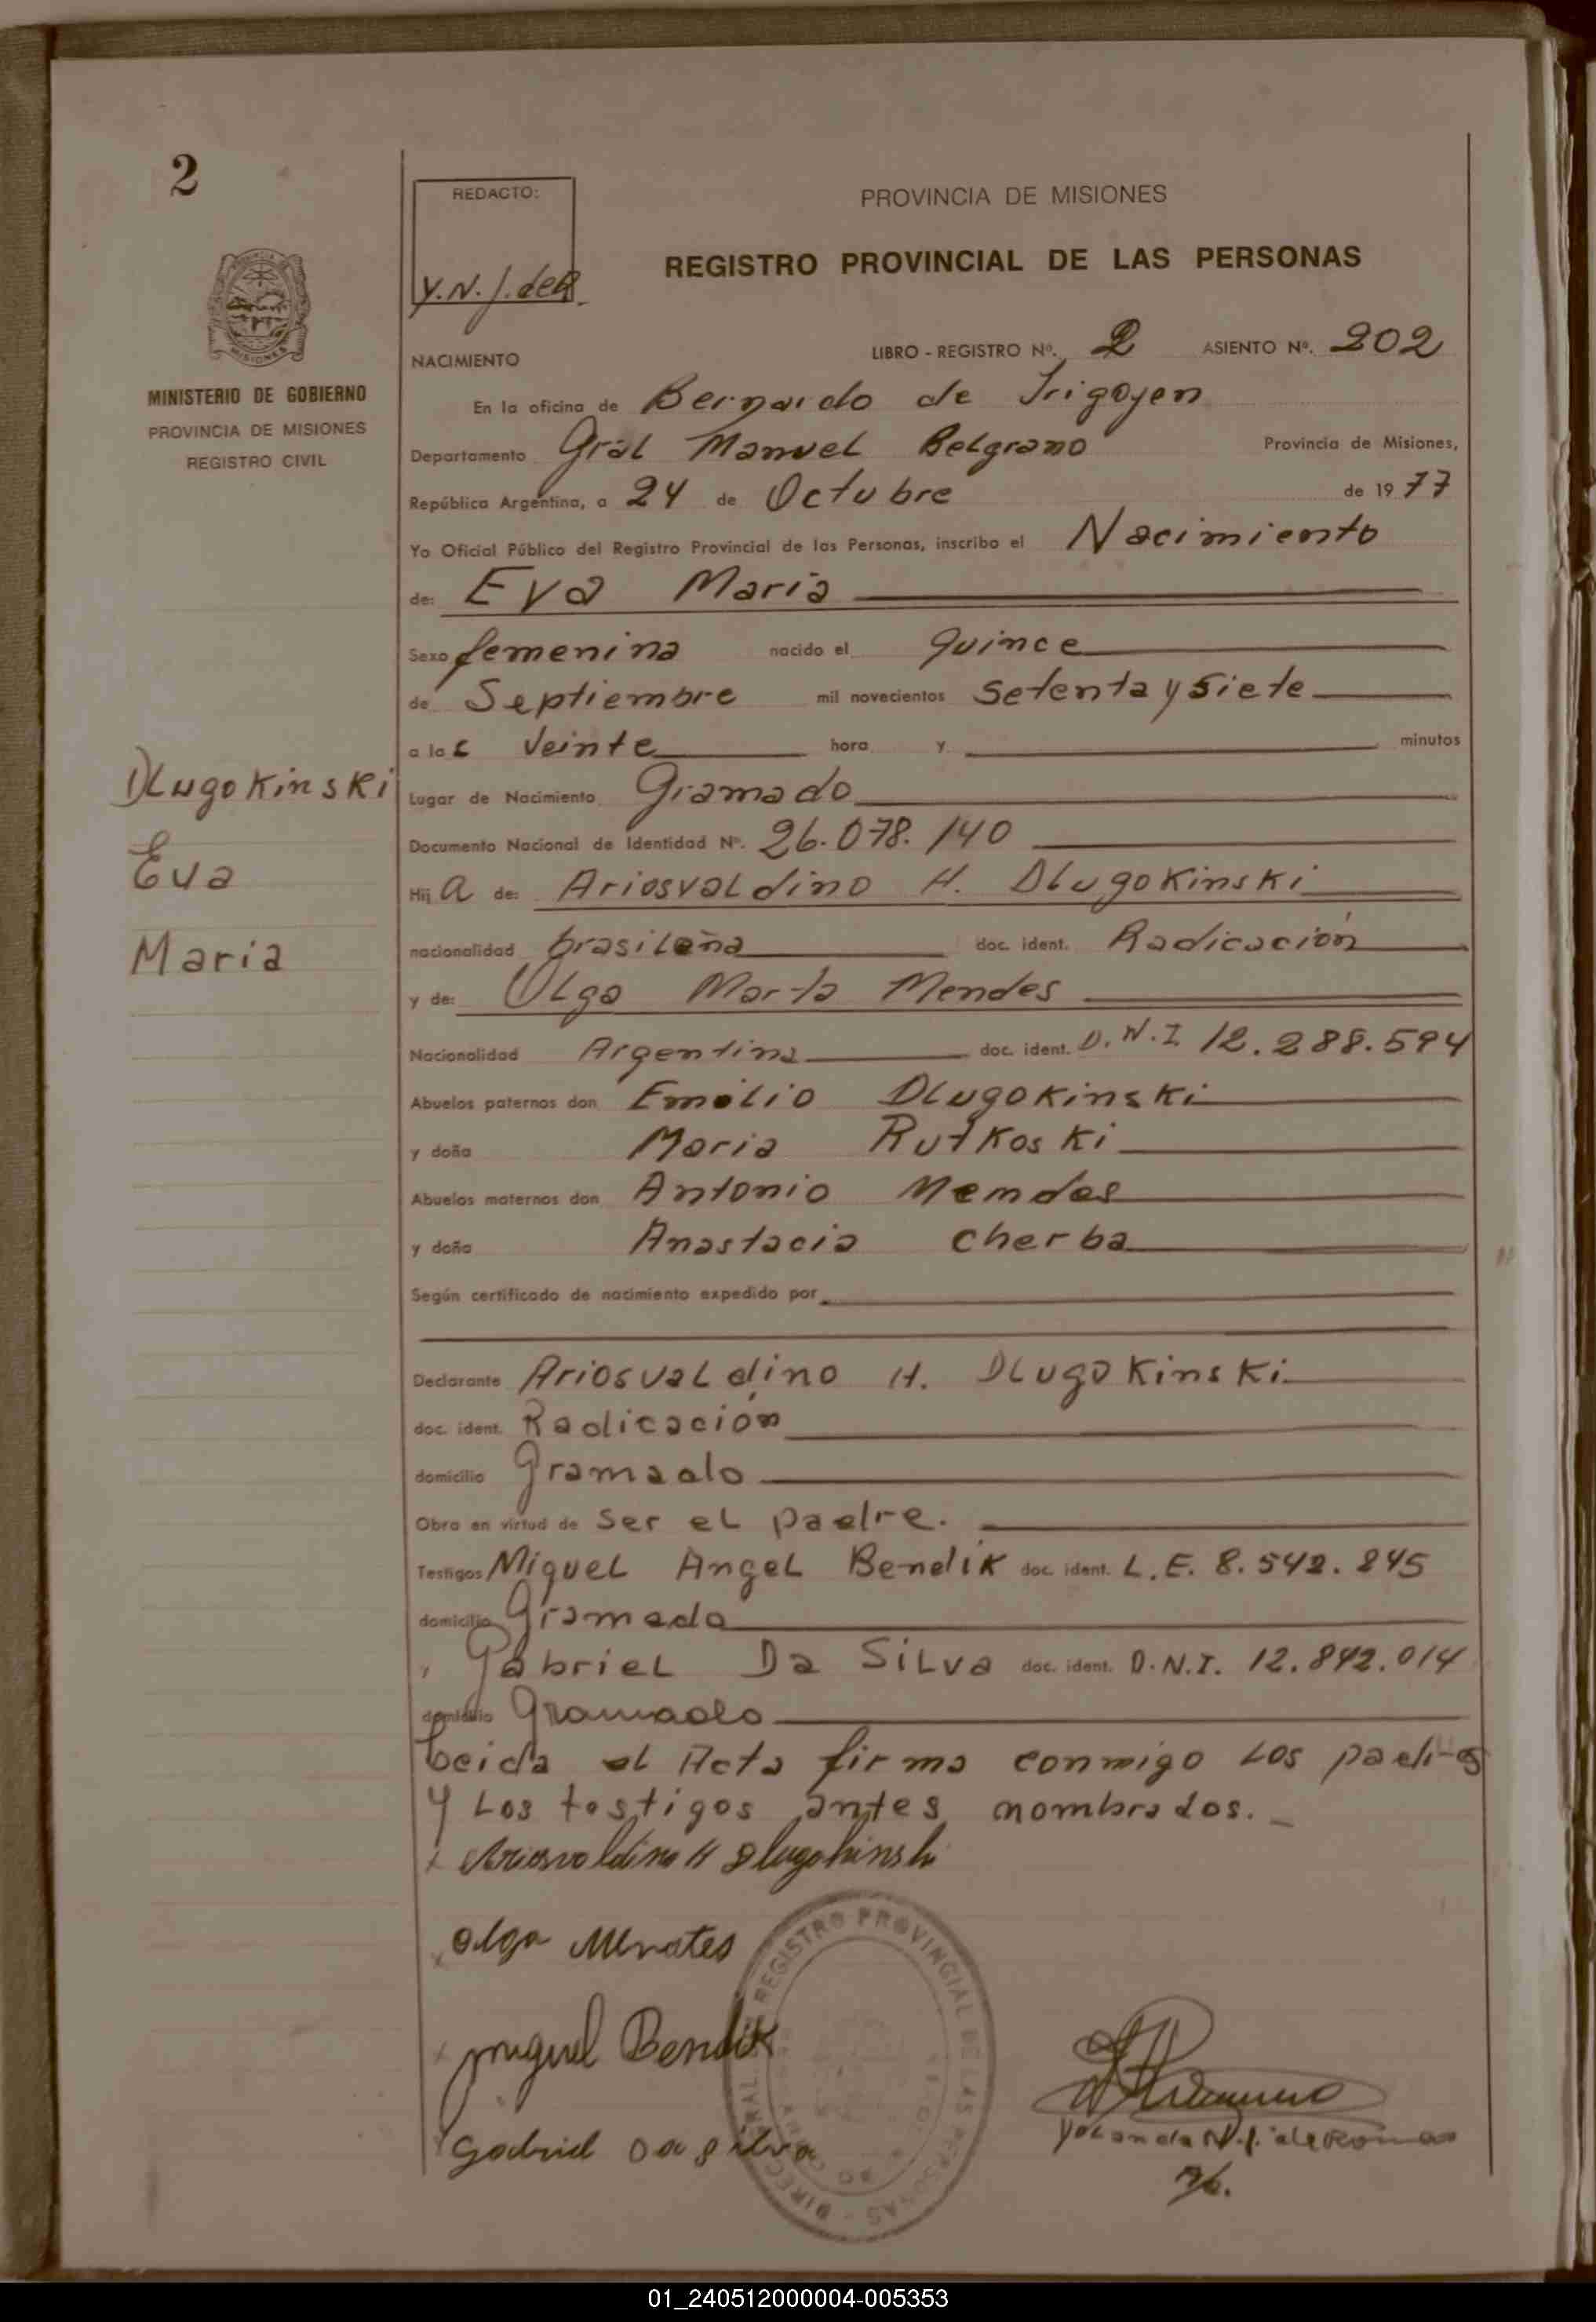 2
REDACTO:
Y.N.J. deR.
PROVINCIA DE MISIONES
REGISTRO PROVINCIAL DE LAS PERSONAS
MINISTERIO DE GOBIERNO
PROVINCIA DE MISIONES
REGISTRO CIVIL
NACIMIENTO LIBRO - REGISTRO Nº. 2 ASIENTO Nº. 202
En la oficina de Bernardo de Irigoyen
Departamento Gral Manuel Belgrano Provincia de Misiones,
República Argentina, a 24 de Octubre de 1977
Yo Oficial Público del Registro Provincial de las Personas, inscribo el Nacimiento
de: Eva Maria
Sexo femenina nacido el quince
de Septiembre mil novecientos setenta y siete
a las veinte hora y minutos
Lugar de Nacimiento Gramado
Documento Nacional de Identidad Nº. 26.078.140
Hij a de: Ariosvaldino H. Dlugokinski
nacionalidad brasileña doc. ident. Radicación
y de: Olga Marta Mendes
Nacionalidad Argentina doc. ident. D.N.I 12.288.594
Abuelos paternos don Emilio Dlugokinski
y doña Maria Rutkoski
Abuelos maternos don Antonio Memdes
y doña Anastacia Cherba
Según certificado de nacimiento expedido por
Declarante Ariosvaldino H. Dlugokinski
doc. ident. Radicación
domicilio Gramado
Obra en virtud de ser el padre.
Testigos Miguel Angel Bendik doc. ident. L.E. 8.542.845
domicilio Gramado
y Gabriel Da Silva doc. ident. D.N.I. 12.842.014
domicilio Gramado
Leida el Acta firma conmigo los padres
y los testigos antes nombrados.
Dlugokinski
Eva
Maria
Ariosvaldino H Dlugokinski
Olga Mendes
Miguel Bendik
Gabriel Da Silva
DIRECCION GRAL. REGISTRO PROVINCIAL DE LAS PERSONAS
Yolanda N. J. de Romero
01_240512000004-005353